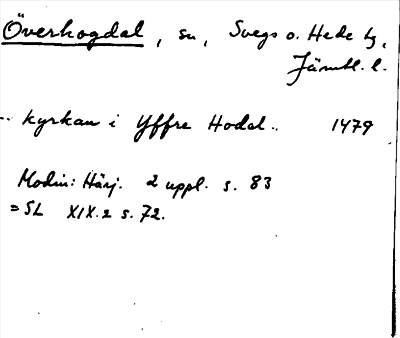 Överhogdal, sn, Svegs o. Hede tg,
Jämtl. l.
.. kyrkan i Yffre Hodal.. 1479
Modin: Härj. 2 uppl. s. 83
= SL XIX.2 s. 72.